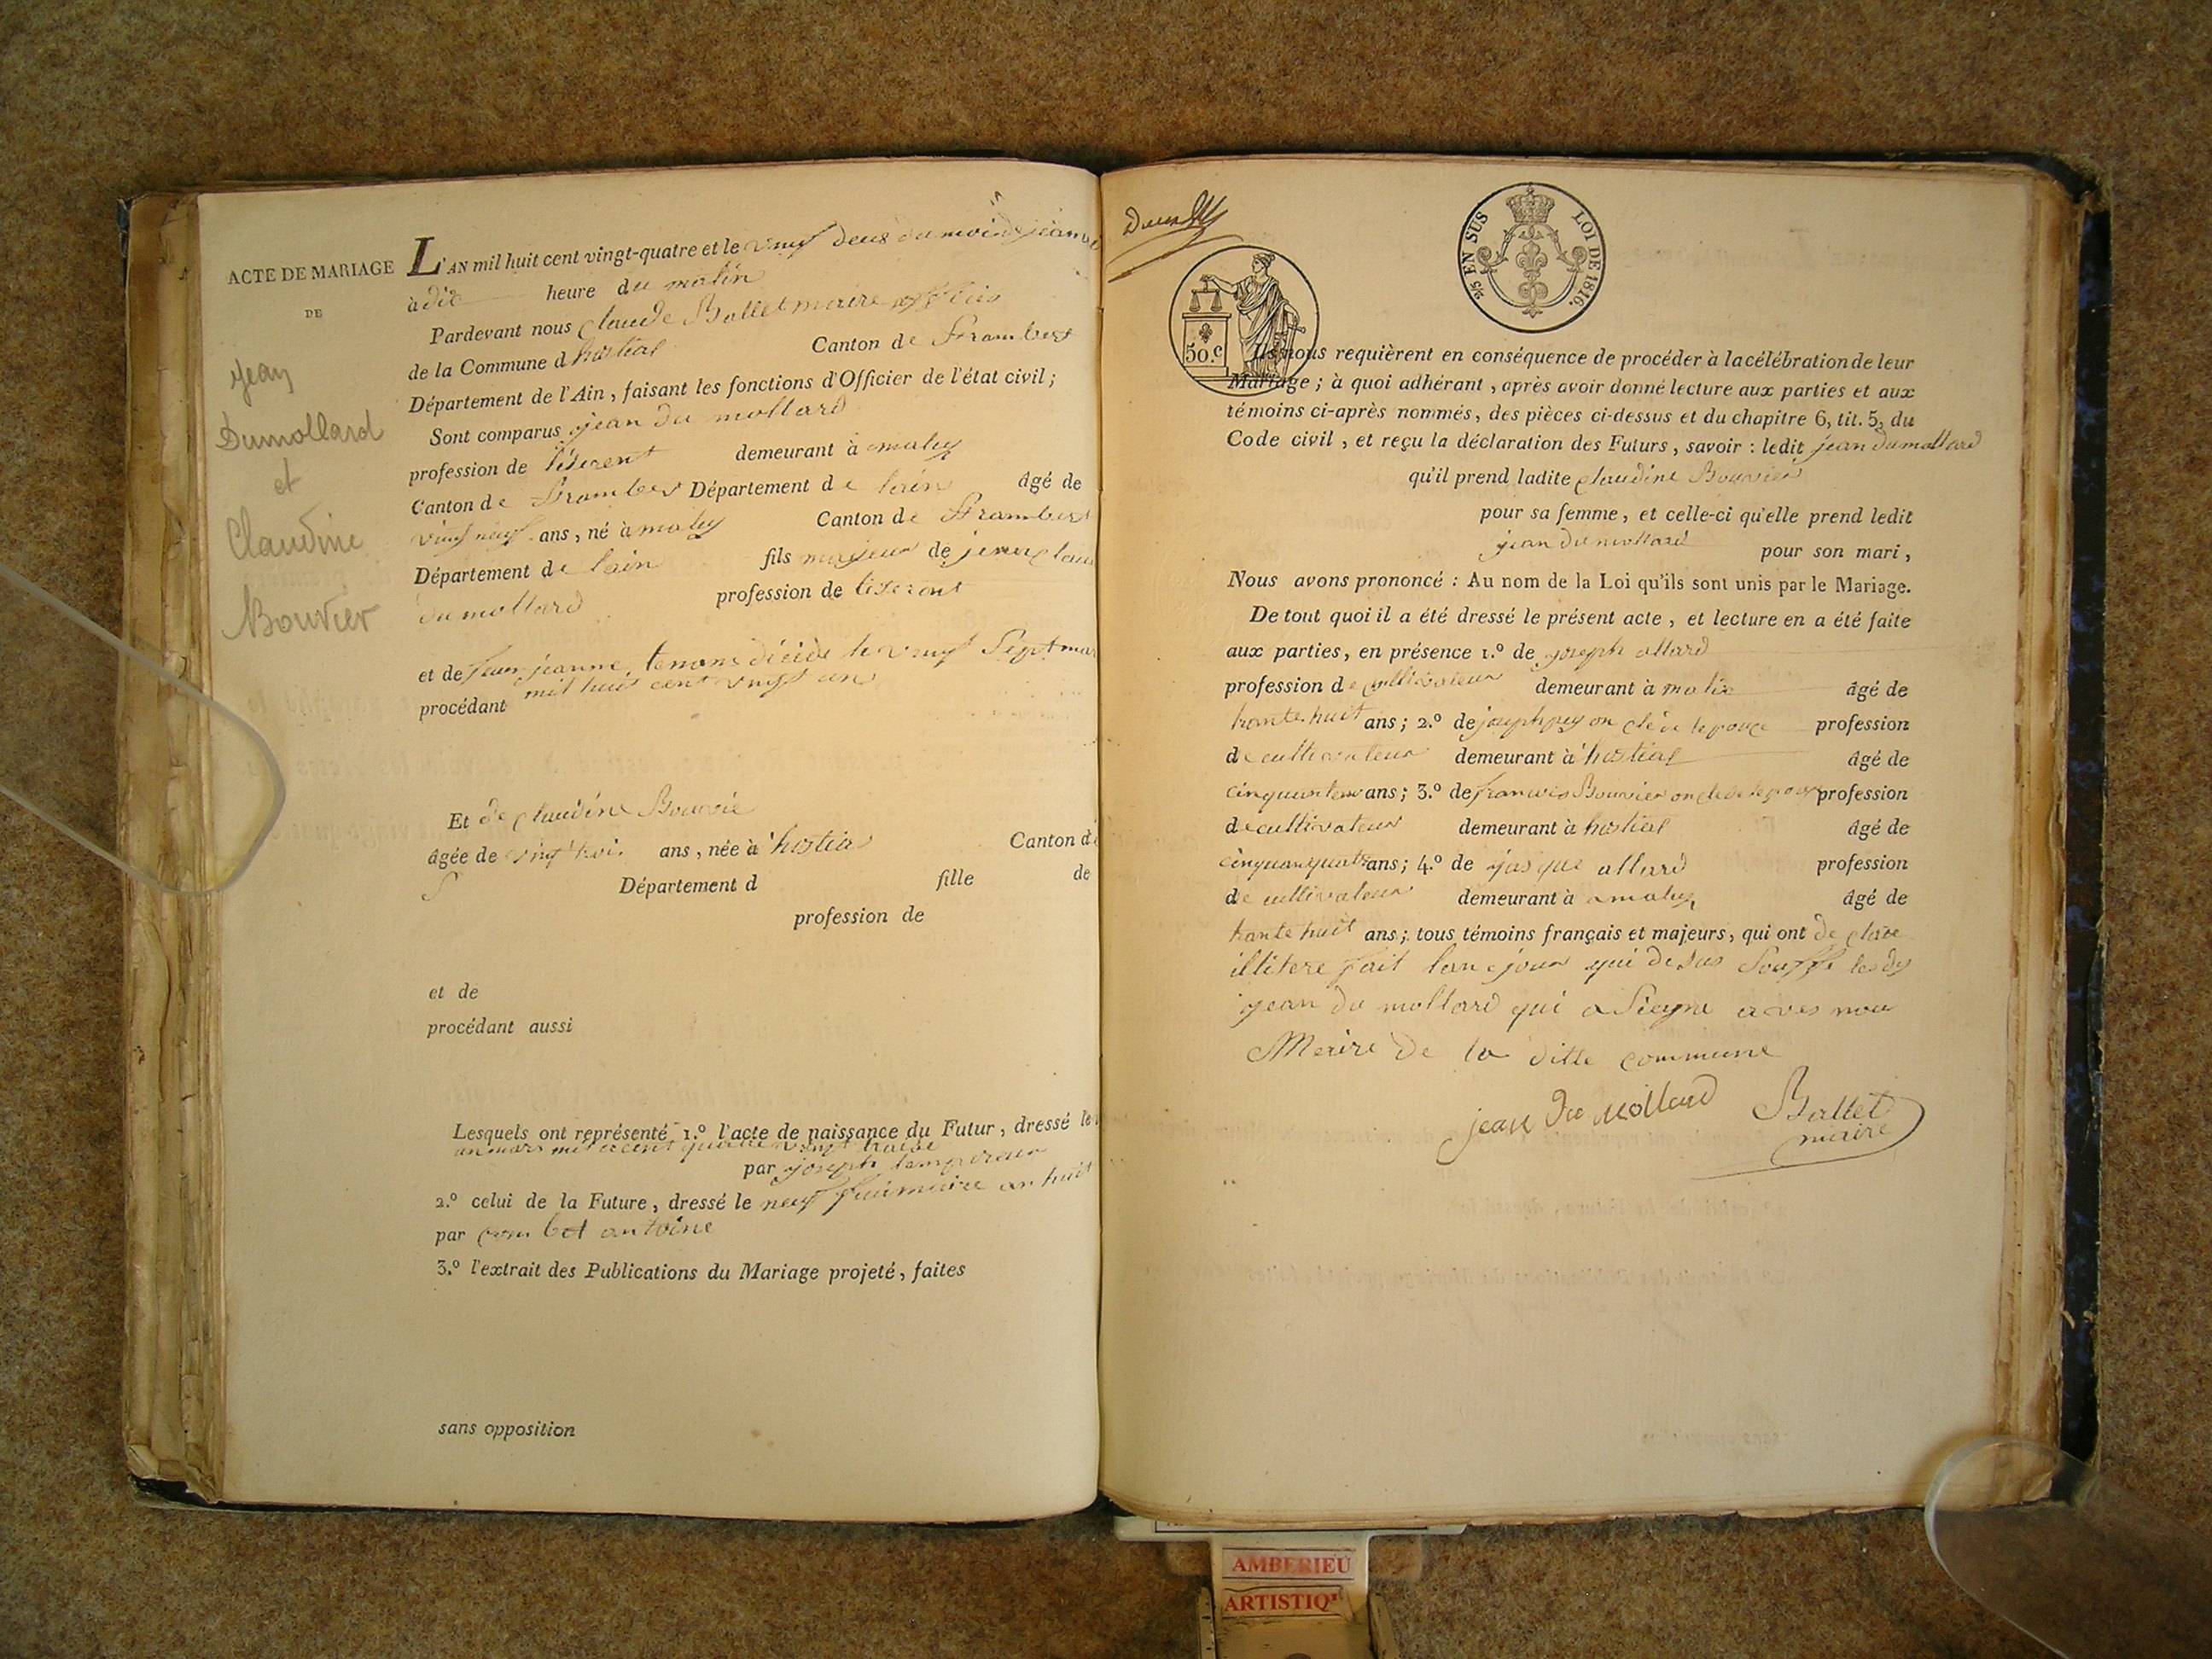 ACTE DE MARIAGE
DE
Jean
Dumollard
et
Claudine
Bouvier
L'AN mil huit cent vingt-quatre et le vingt deus du mois de janv
à dix heure du matin
Pardevant nous claude Ballet maire
de la Commune d hostiat Canton de St rambert
Département de l'Ain, faisant les fonctions d'Officier de l'état civil;
Sont comparus jean du mollard
profession de tiserent demeurant à
Canton de St rambert Département de lain âgé de
vint neuf ans, né à Canton de St rambert
Département de lain fils majeur de
du mollard profession de tiseront
et de jeanne décédé le vingt Sept mar
mil huit cent vingt un
procédant
Et de claudine Bouvie
âgée de vingt troi ans, née à hostia Canton de
Département d fille de
profession de
et de
procédant aussi
Lesquels ont représenté 1.º l'acte de naissance du Futur, dressé le
mars
par joseph
2.º celui de la Future, dressé le neuf an huit
par combet antoine
3.º l'extrait des Publications du Mariage projeté, faites
sans opposition
50.c
2/5 EN SUS LOI DE 1816.
Ils nous requièrent en conséquence de procéder à la célébration de leur
Mariage; à quoi adhérant, après avoir donné lecture aux parties et aux
témoins ci-après nommés, des pièces ci-dessus et du chapitre 6, tit. 5, du
Code civil, et reçu la déclaration des Futurs, savoir: ledit jean dumollard
qu'il prend ladite claudine Bouvier
pour sa femme, et celle-ci qu'elle prend ledit
jean dumollard pour son mari,
Nous avons prononcé: Au nom de la Loi qu'ils sont unis par le Mariage.
De tout quoi il a été dressé le présent acte, et lecture en a été faite
aux parties, en présence 1.º de joseph allard
profession de cultivateur demeurant à âgé de
trante huit ans; 2.º de profession
de cultivateur demeurant à hostiat âgé de
ans; 3.º de francois Bouvier profession
de cultivateur demeurant à hostiat âgé de
ans; 4.º de allard profession
de cultivateur demeurant à âgé de
trante huit ans; tous témoins français et majeurs, qui ont de clare
illitere fait lan e jour qui desus
jean du mollard qui a Sieyne aves nou
Maire de la ditte commune
jean du mollard Ballet
maire
AMBERIEU
ARTISTIQ